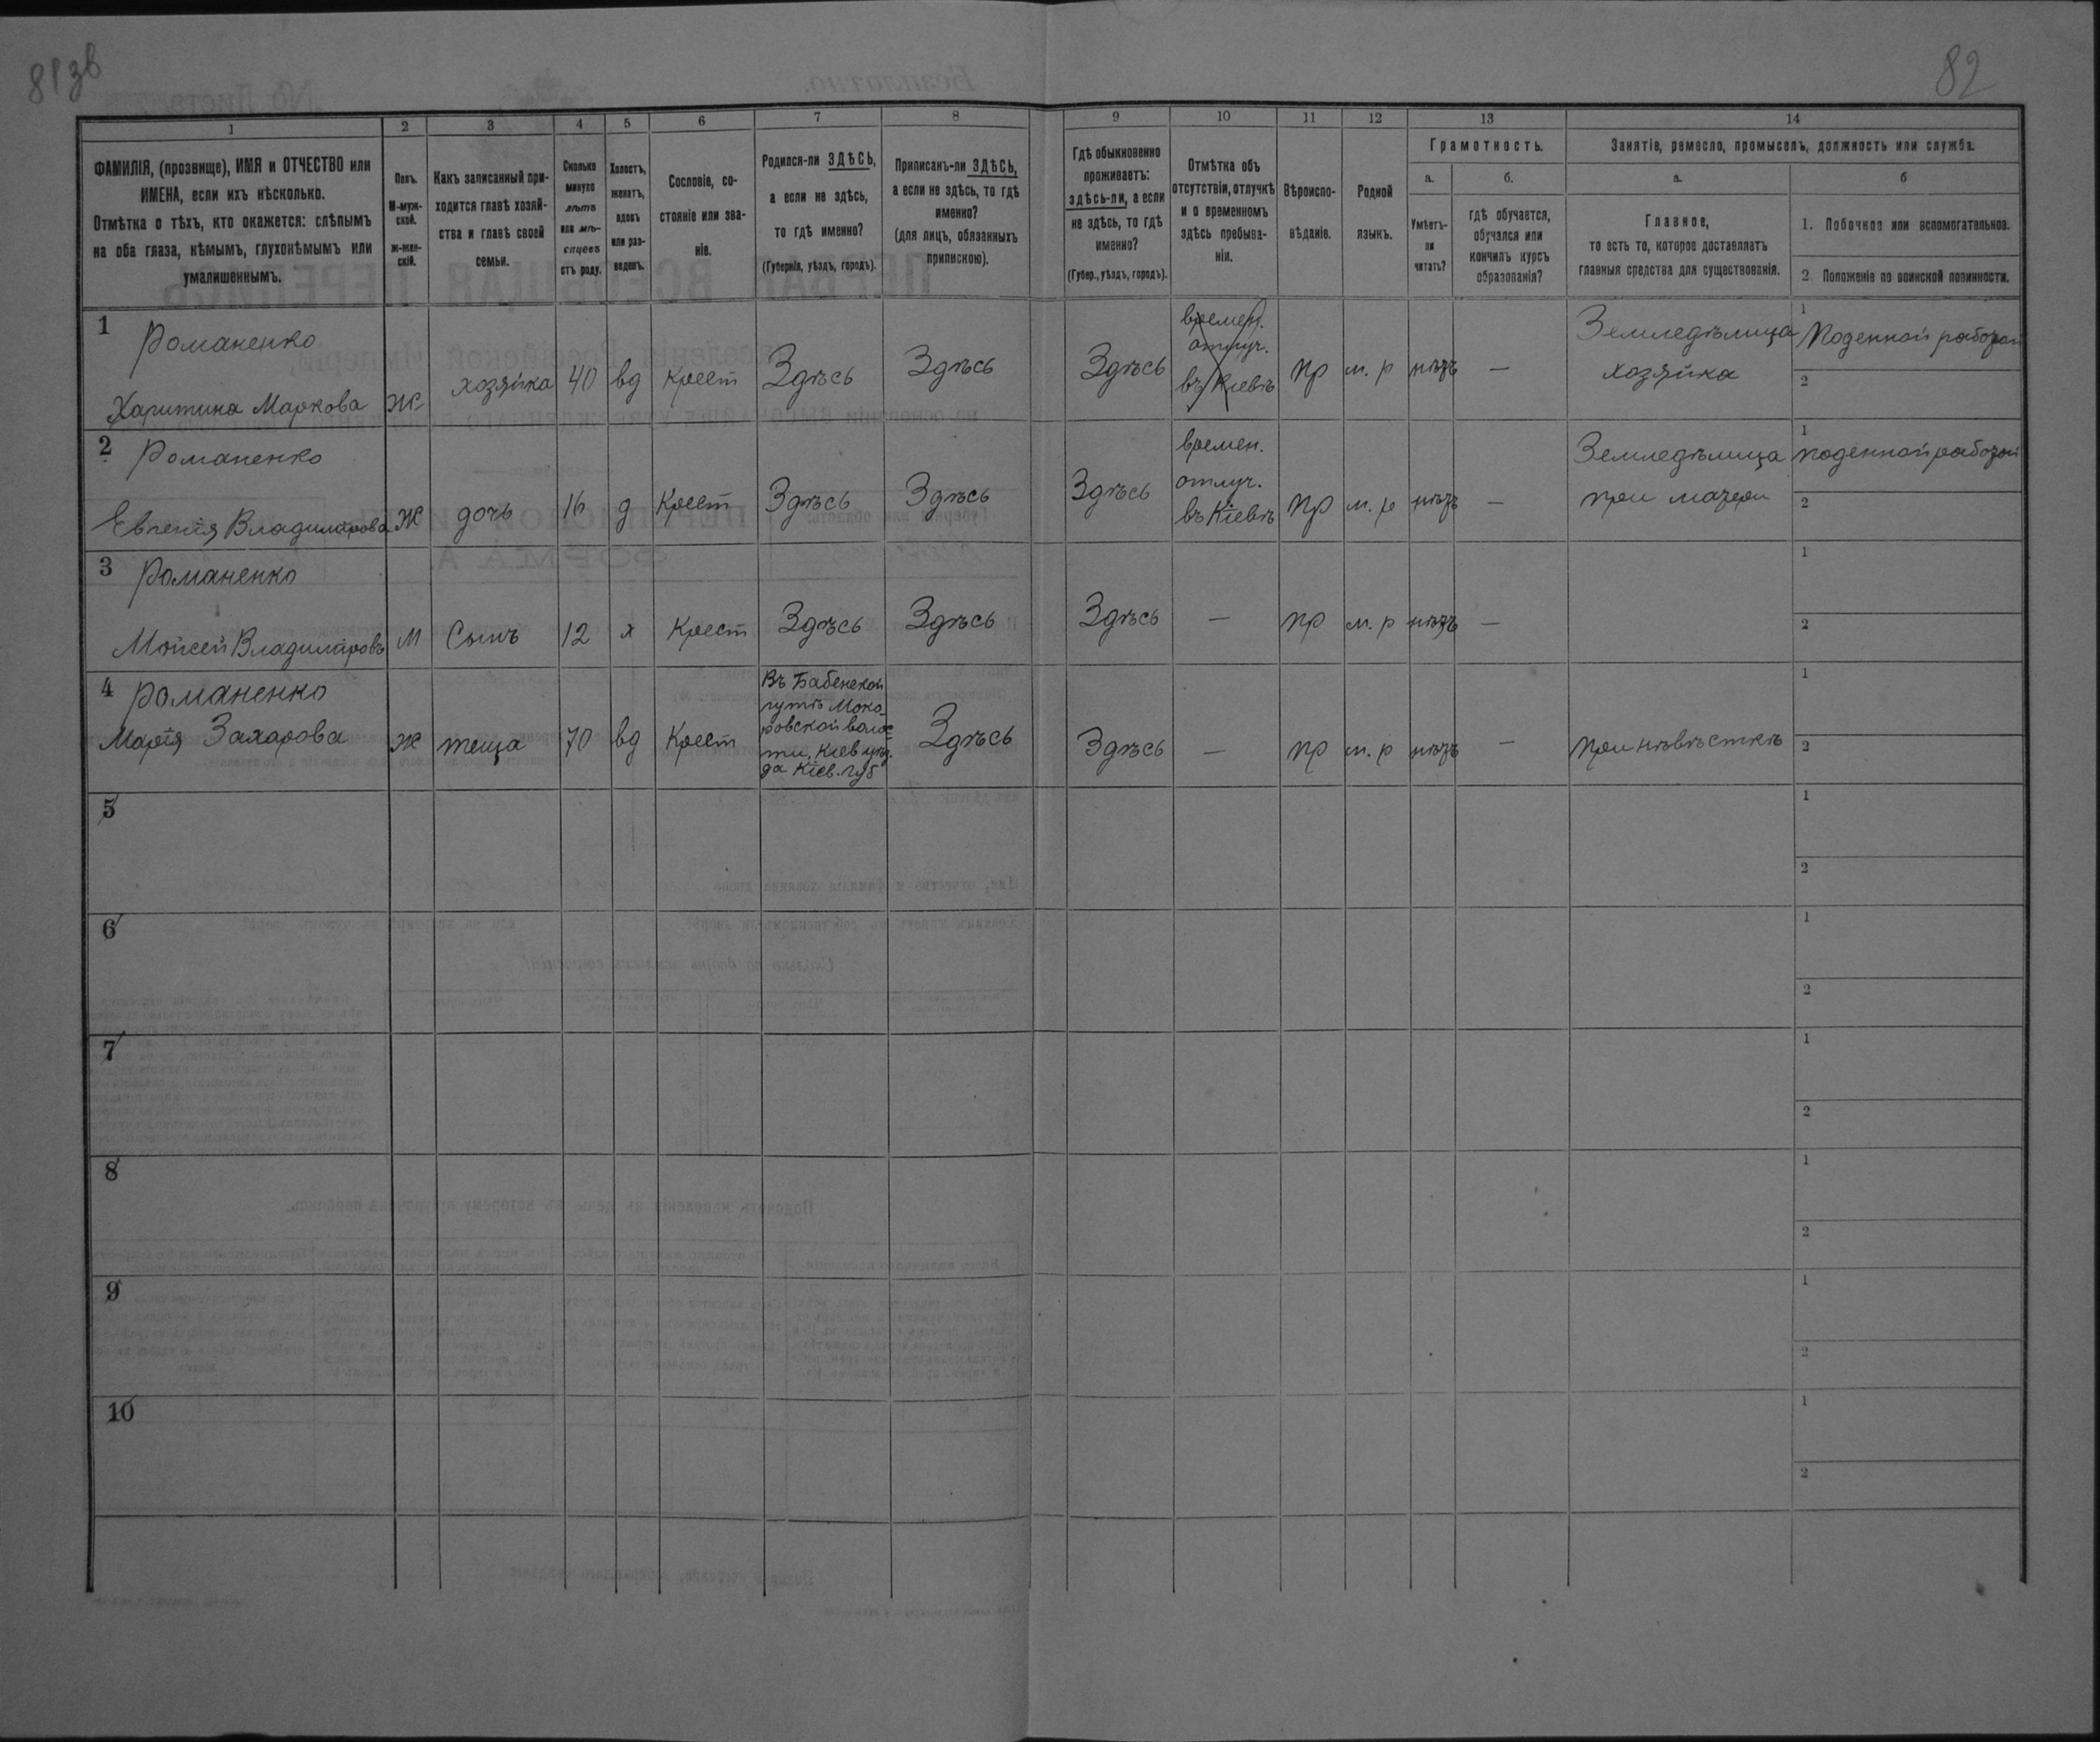 81зв
82
1
2
3
4
5
6
7
8
9
10
11
12
13
14
ФАМИЛІЯ, (прозвище), ИМЯ и ОТЧЕСТВО или
ИМЕНА, если ихъ нѣсколько.
Отмѣтка о тѣхъ, кто окажется: слѣпымъ
на оба глаза, нѣмымъ, глухонѣмымъ или
умалишеннымъ.
Полъ.
М-муж-
ской.
Ж-жен-
скій.
Какъ записанный при-
ходится главѣ хозяй-
ства и главѣ своей
семьи.
Сколько
минуло
лѣтъ
или мѣ-
сяцевъ
отъ роду.
Холостъ,
женатъ,
вдовъ
или раз-
веденъ.
Сословіе, со-
стояніе или зва-
ніе.
Родился-ли ЗДѢСЬ,
а если не здѣсь,
то гдѣ именно?
(Губернія, уѣздъ, городъ).
Приписанъ-ли ЗДѢСЬ,
а если не здѣсь, то гдѣ
именно?
(для лицъ, обязанныхъ
припискою).
Гдѣ обыкновенно
проживаетъ:
здѣсь-ли, а если
не здѣсь, то гдѣ
именно?
(Губер., уѣздъ, городъ).
Отмѣтка объ
отсутствіи, отлучкѣ
и о временномъ
здѣсь пребыва-
ніи.
Вѣроиспо-
вѣданіе.
Родной
языкъ.
Грамотность.
а.
Умѣетъ-
ли
читать?
б.
гдѣ обучается,
обучался или
кончилъ курсъ
образованія?
Занятіе, ремесло, промыселъ, должность или служба.
а.
Главное,
то есть то, которое доставляетъ
главныя средства для существованія.
б
1. Побочное или вспомогательное.
2. Положеніе по воинской повинности.
1
Романенко
Харитина Маркова
Ж
хозяйка
40
вд
Крест
Здѣсь
Здѣсь
Здѣсь
времен.
отлуч.
въ Кіевѣ
пр
м. р
нѣтъ
—
Земледѣлица
хозяйка
1
Поденной работой
2
2
Романенко
Евгенія Владимірова
Ж
дочь
16
д
Крест
Здѣсь
Здѣсь
Здѣсь
времен.
отлуч.
въ Кіевѣ
пр
м. р
нѣтъ
—
Земледѣлица
при матери
1
поденной работой
2
3
Романенко
Моисей Владиміровъ
М
Сынъ
12
х
Крест
Здѣсь
Здѣсь
Здѣсь
—
пр
м. р
нѣтъ
—
1
2
4
Романенко
Марія Захарова
Ж
теща
70
вд
Крест
Въ Бабенской
гутѣ Мока-
ровской волос
ти, Кіев уѣз.
да Кіев. губ
Здѣсь
Здѣсь
—
пр
м. р
нѣтъ
—
при нѣвѣсткѣ
1
2
5
1
2
6
1
2
7
1
2
8
1
2
9
1
2
10
1
2